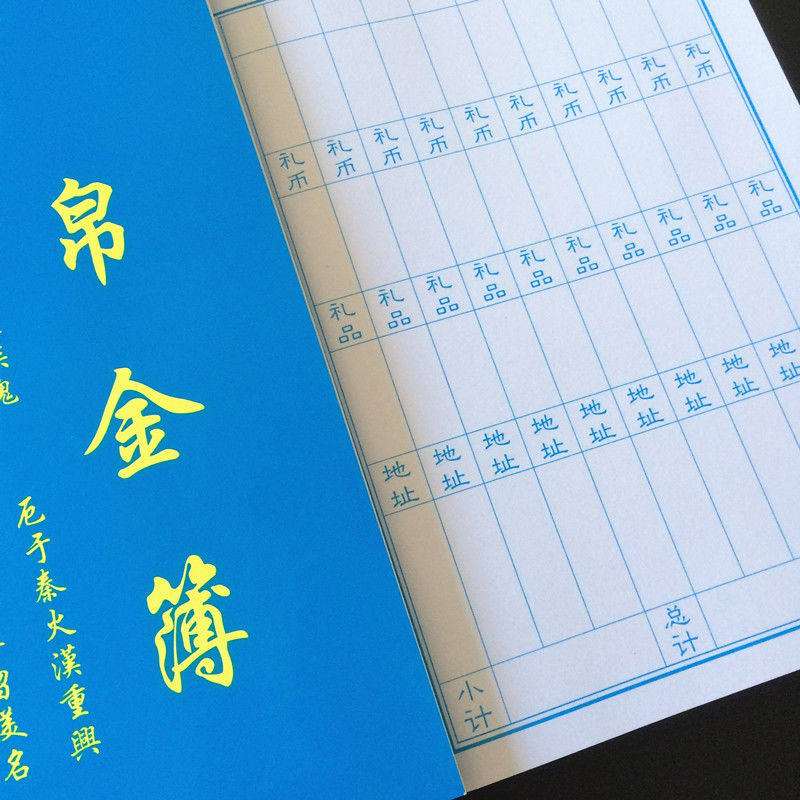 帛金簿
厄于秦火漢重興
美名
魂
礼币
礼币
礼币
礼币
礼币
礼币
礼币
礼币
礼币
礼币
礼品
礼品
礼品
礼品
礼品
礼品
礼品
礼品
礼品
礼品
地址
地址
地址
地址
地址
地址
地址
地址
地址
总计
小计